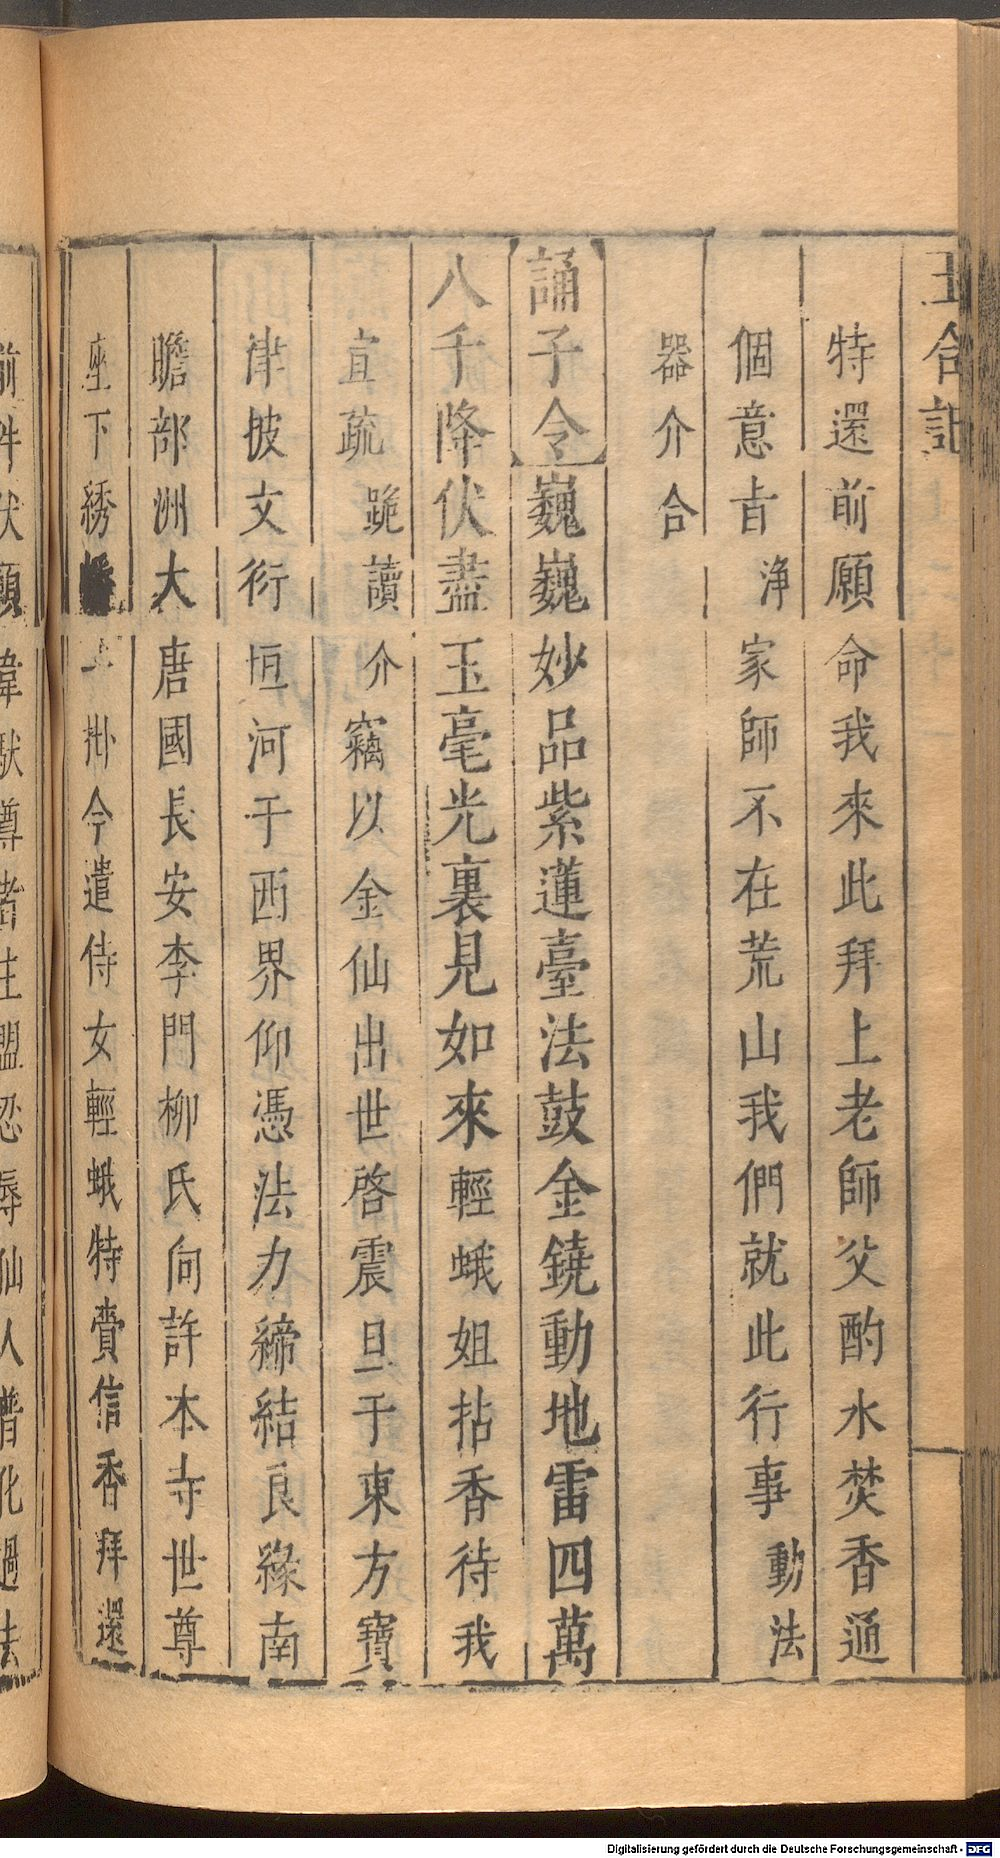 玉合記
特還前願命我來此拜上老師父酌水焚香通
個意㫖淨家師不在荒山我們就此行事動法
器介合
誦子令巍巍妙品紫蓮臺法鼓金鐃動地雷四萬
八千降伏盡玉毫光裏見如來輕蛾姐拈香待我
宣疏跪讀介竊以金仙出世啓震旦于東方寶
津披文衍垣河于西界仰憑法力締結良緣南
瞻部洲大唐國長安李門柳氏向許本寺世尊
座下綉旛上掛今遣侍女輕蛾特賫信香拜還
前件伏願韋馱尊者主盟忍辱仙人普化過去
Digitalisierung gefördert durch die Deutsche Forschungsgemeinschaft - DFG